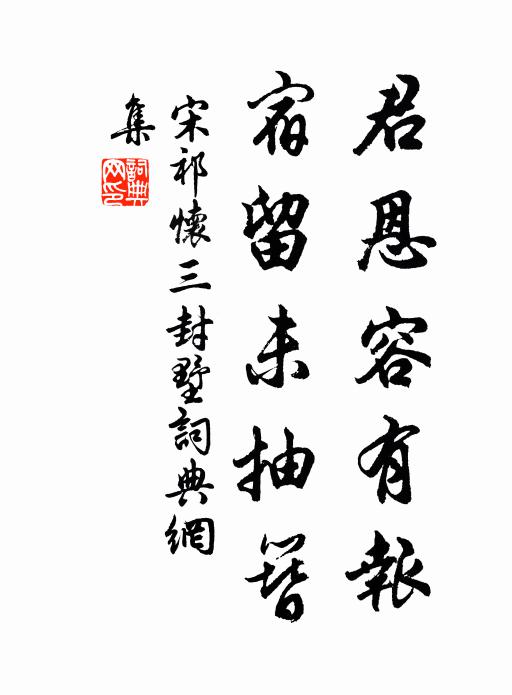 君恩容有報
宿留未抽簪
宋祁懷三封墅詞典網
集
詞典
网印